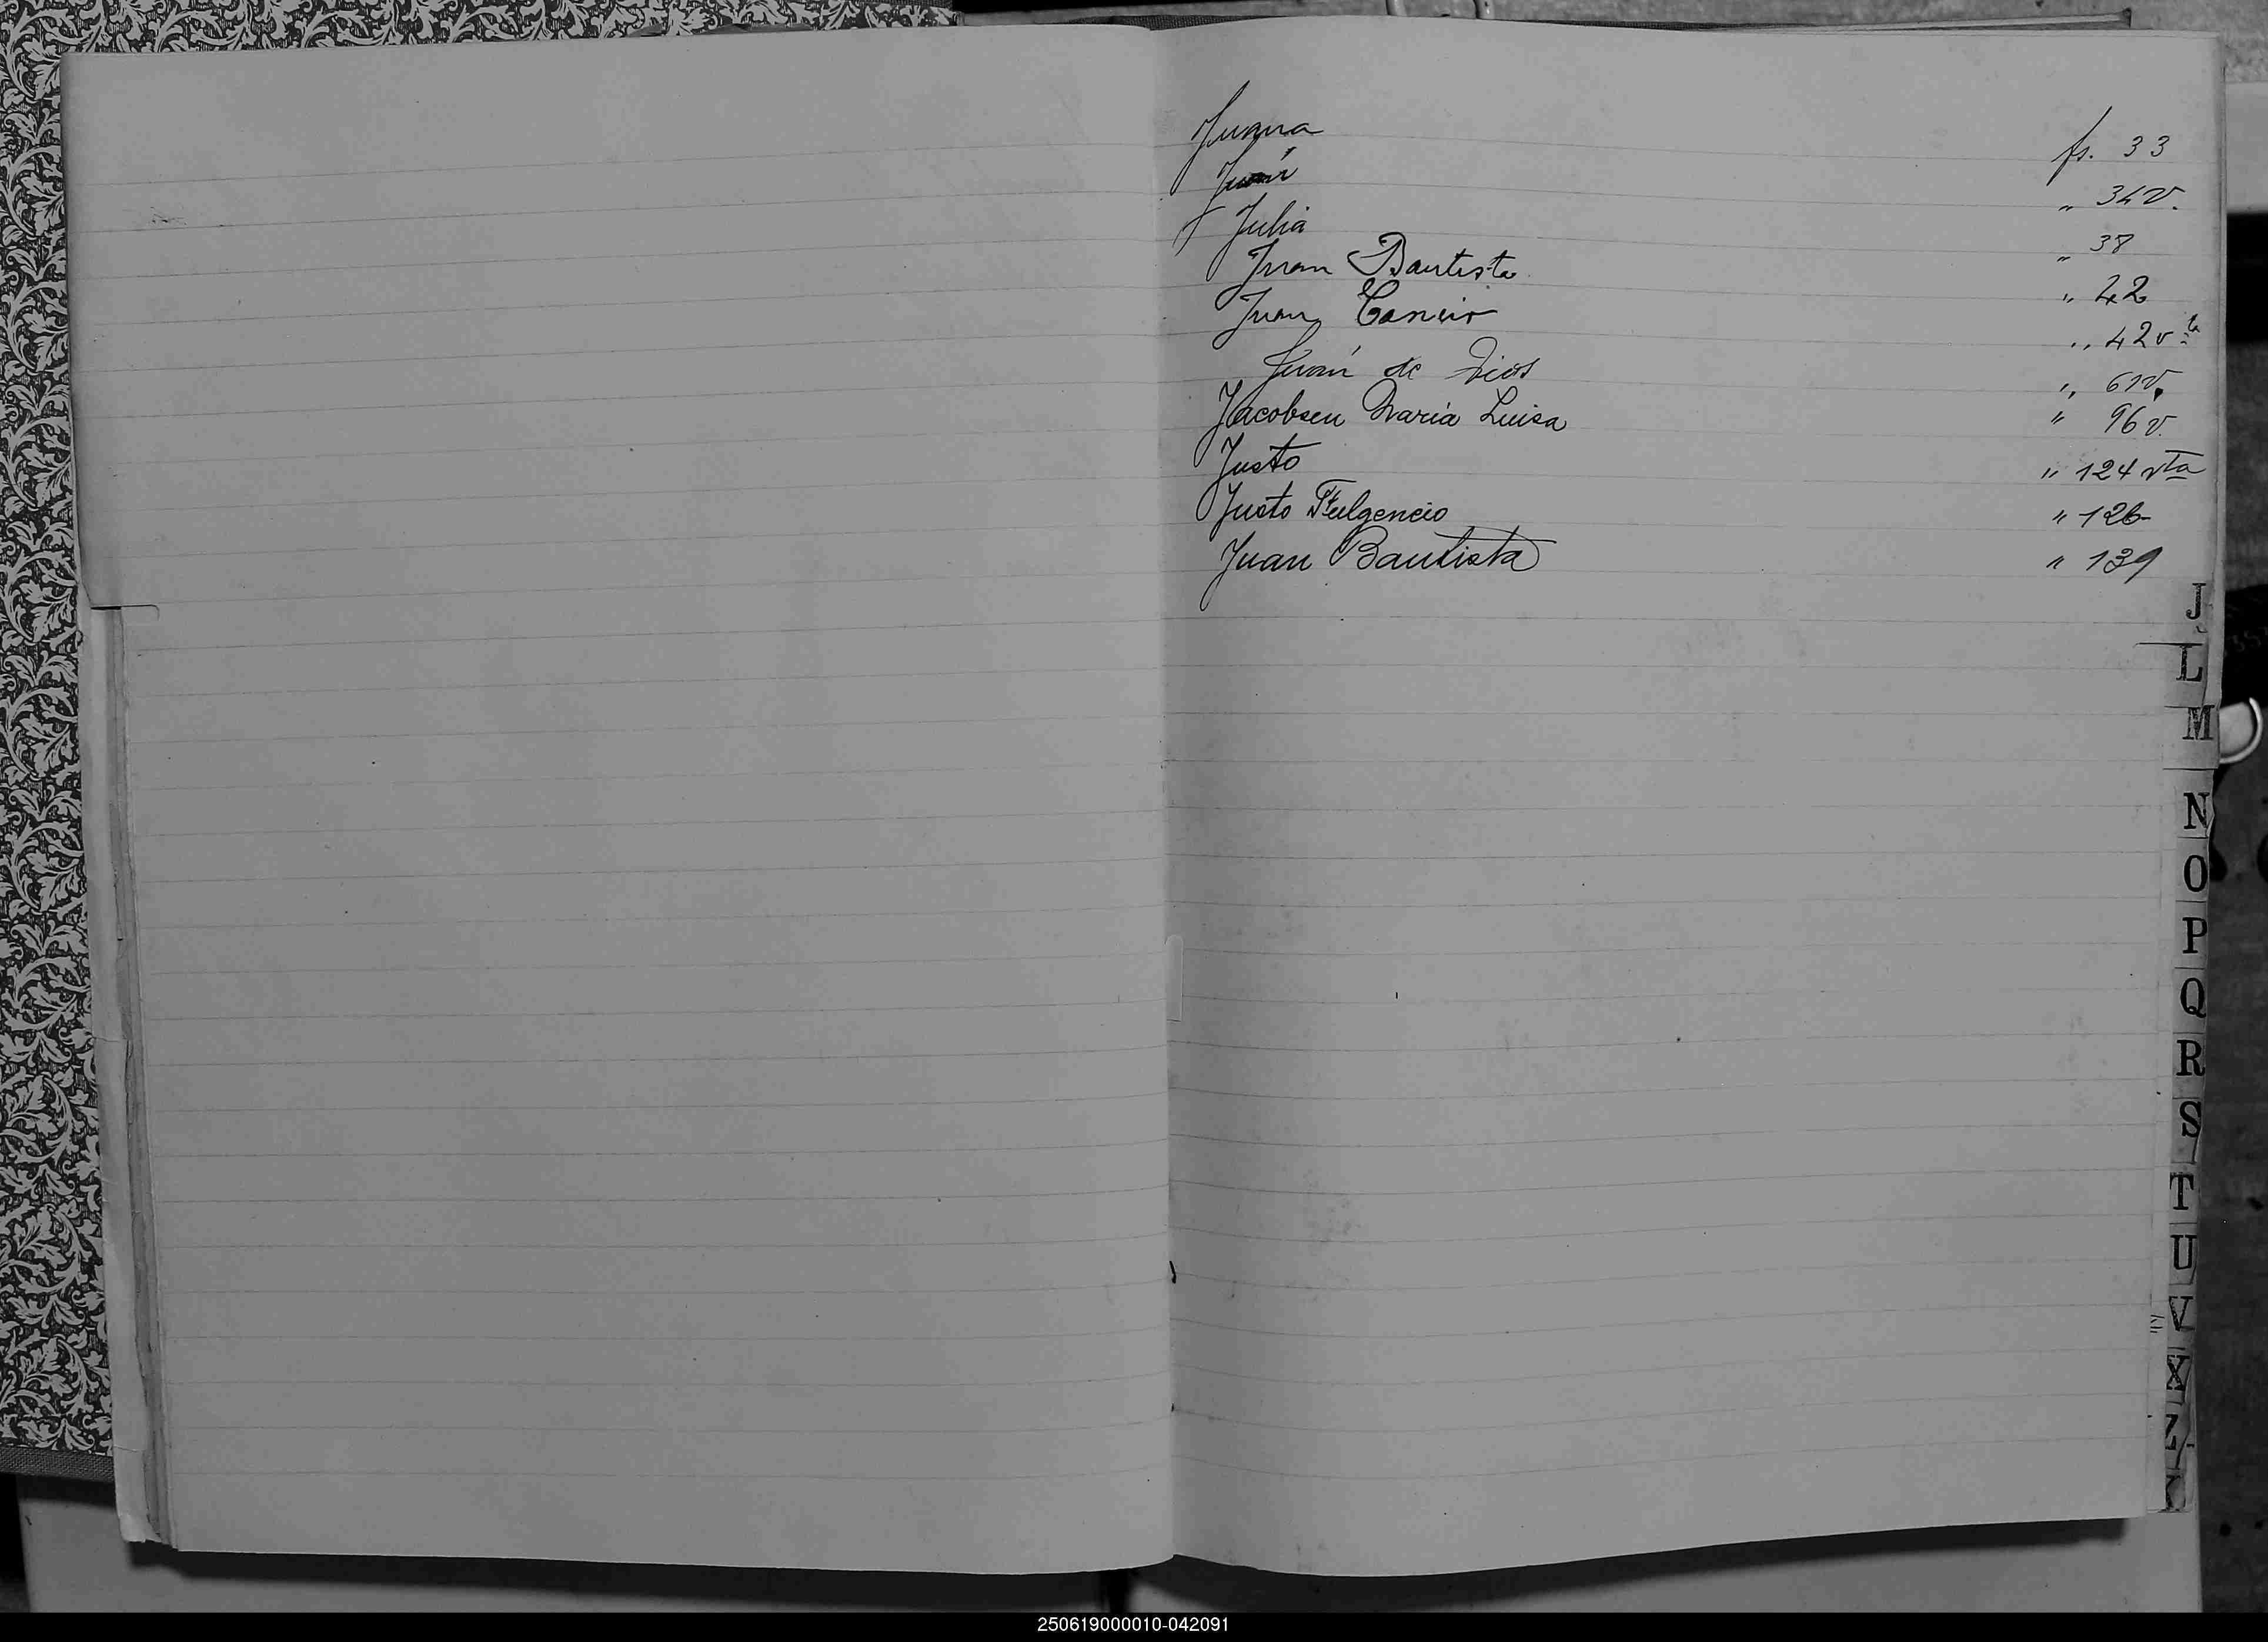 Juana fs. 33
Juán " 34 v.
Julia " 38
Juan Bautista " 42
Juan Cancio " 42 vta
Juán de Dios " 61 v.
Jacobsen Maria Luisa " 96 v.
Justo " 124 vta
Justo Fulgencio " 126
Juan Bautista " 139
J
L
M
N
O
P
Q
R
S
T
U
V
X
Z
250619000010-042091